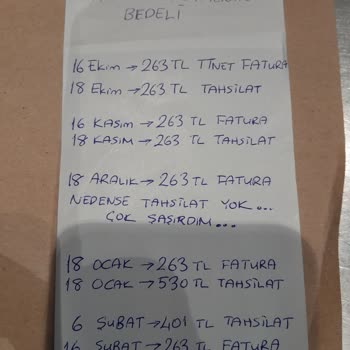 BEDELİ
16 Ekim → 263 TL TTNET FATURA
18 Ekim → 263 TL TAHSİLAT
16 KASIM → 263 TL FATURA
18 KASIM → 263 TL TAHSİLAT
18 ARALIK → 263 TL FATURA
NEDENSE TAHSİLAT YOK...
ÇOK ŞAŞIRDIM...
18 OCAK → 263 TL FATURA
18 OCAK → 530 TL TAHSİLAT
6 ŞUBAT → 401 TL TAHSİLAT
16 ŞUBAT → 263 TL FATURA